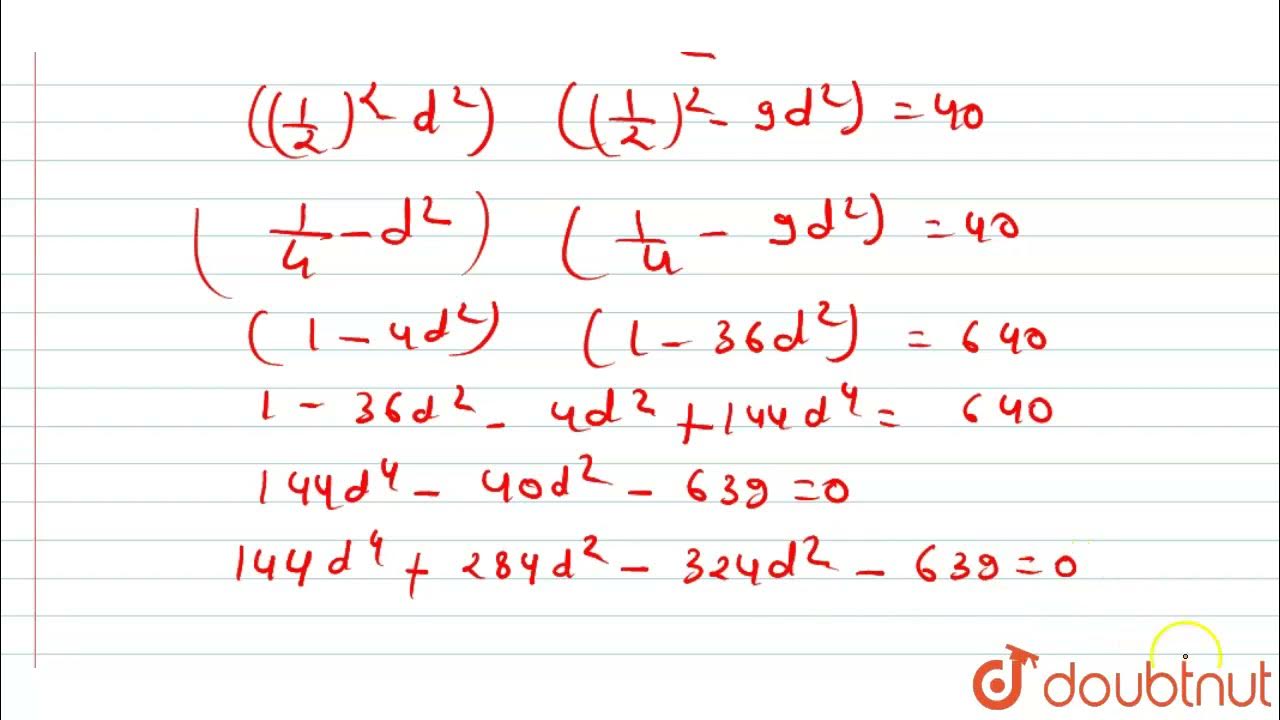 ((1/2)² - d²) ((1/2)² - 9d²) = 40
(1/4 - d²) (1/4 - 9d²) = 40
(1 - 4d²) (1 - 36d²) = 640
1 - 36d² - 4d² + 144d⁴ = 640
144d⁴ - 40d² - 639 = 0
144d⁴ + 284d² - 324d² - 639 = 0
doubtnut